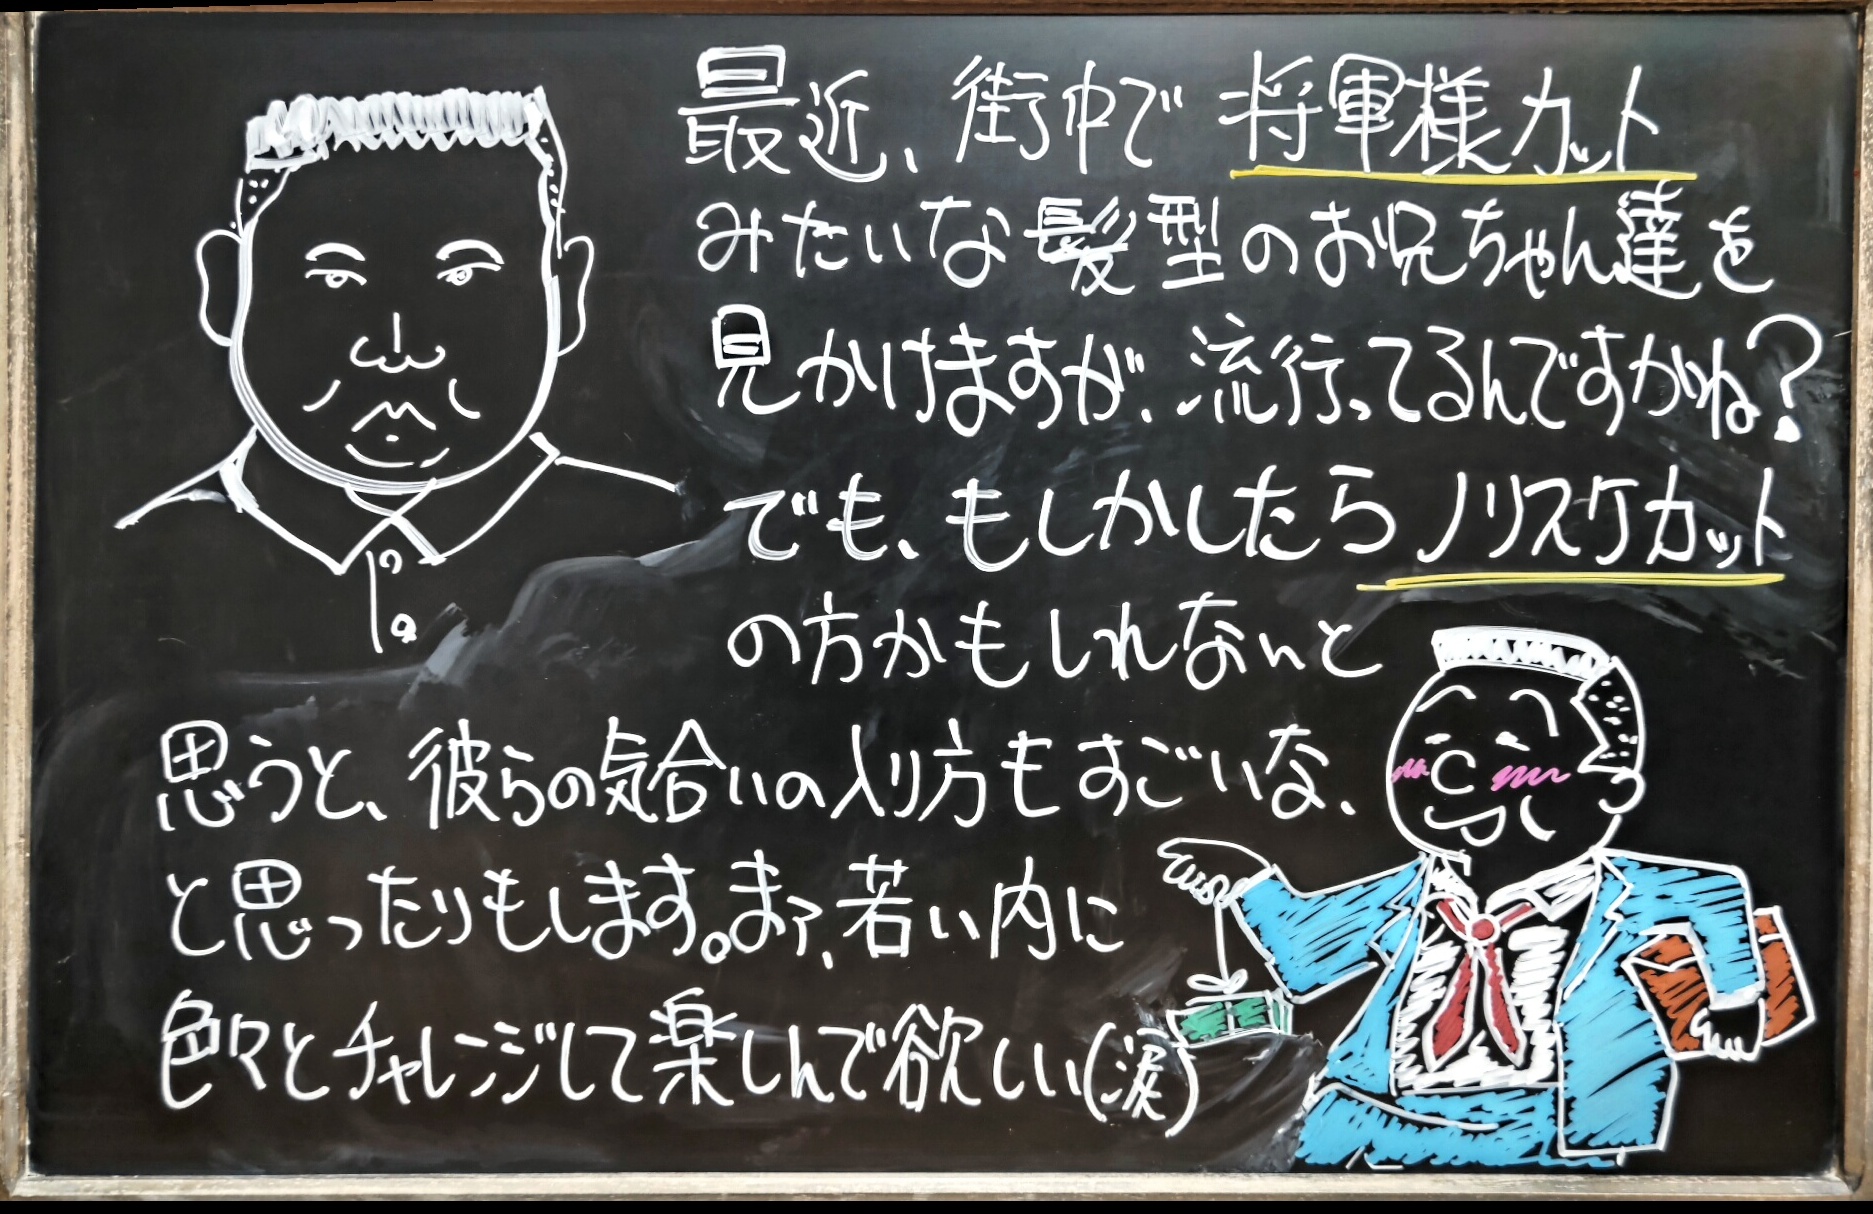 最近、街中で将軍様カット
みたいな髪型のお兄ちゃん達を
見かけますが、流行ってるんですかね?
でも、もしかしたらノリスケカット
の方かもしれないと
思うと、彼らの気合いの入り方もすごいな、
と思ったりもします。まァ、若い内に
色々とチャレンジして楽しんで欲しい(涙)